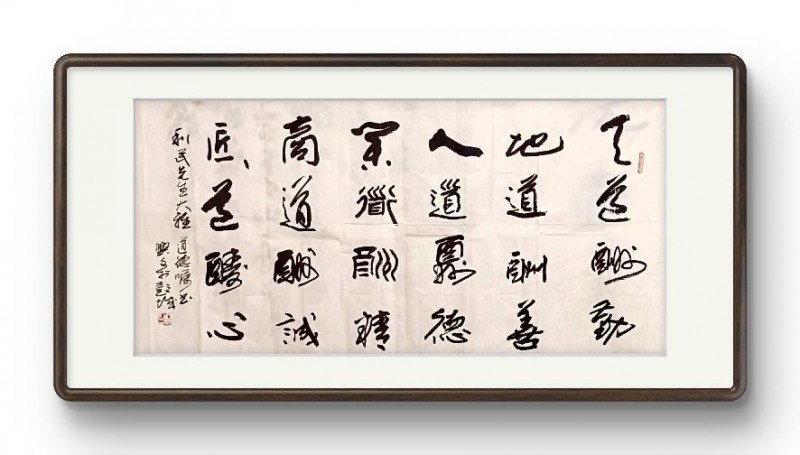 天道酬勤
地道酬善
人道酬德
業道酬精
商道酬誠
匠道醻心
利民先生大雅 道德嘱书